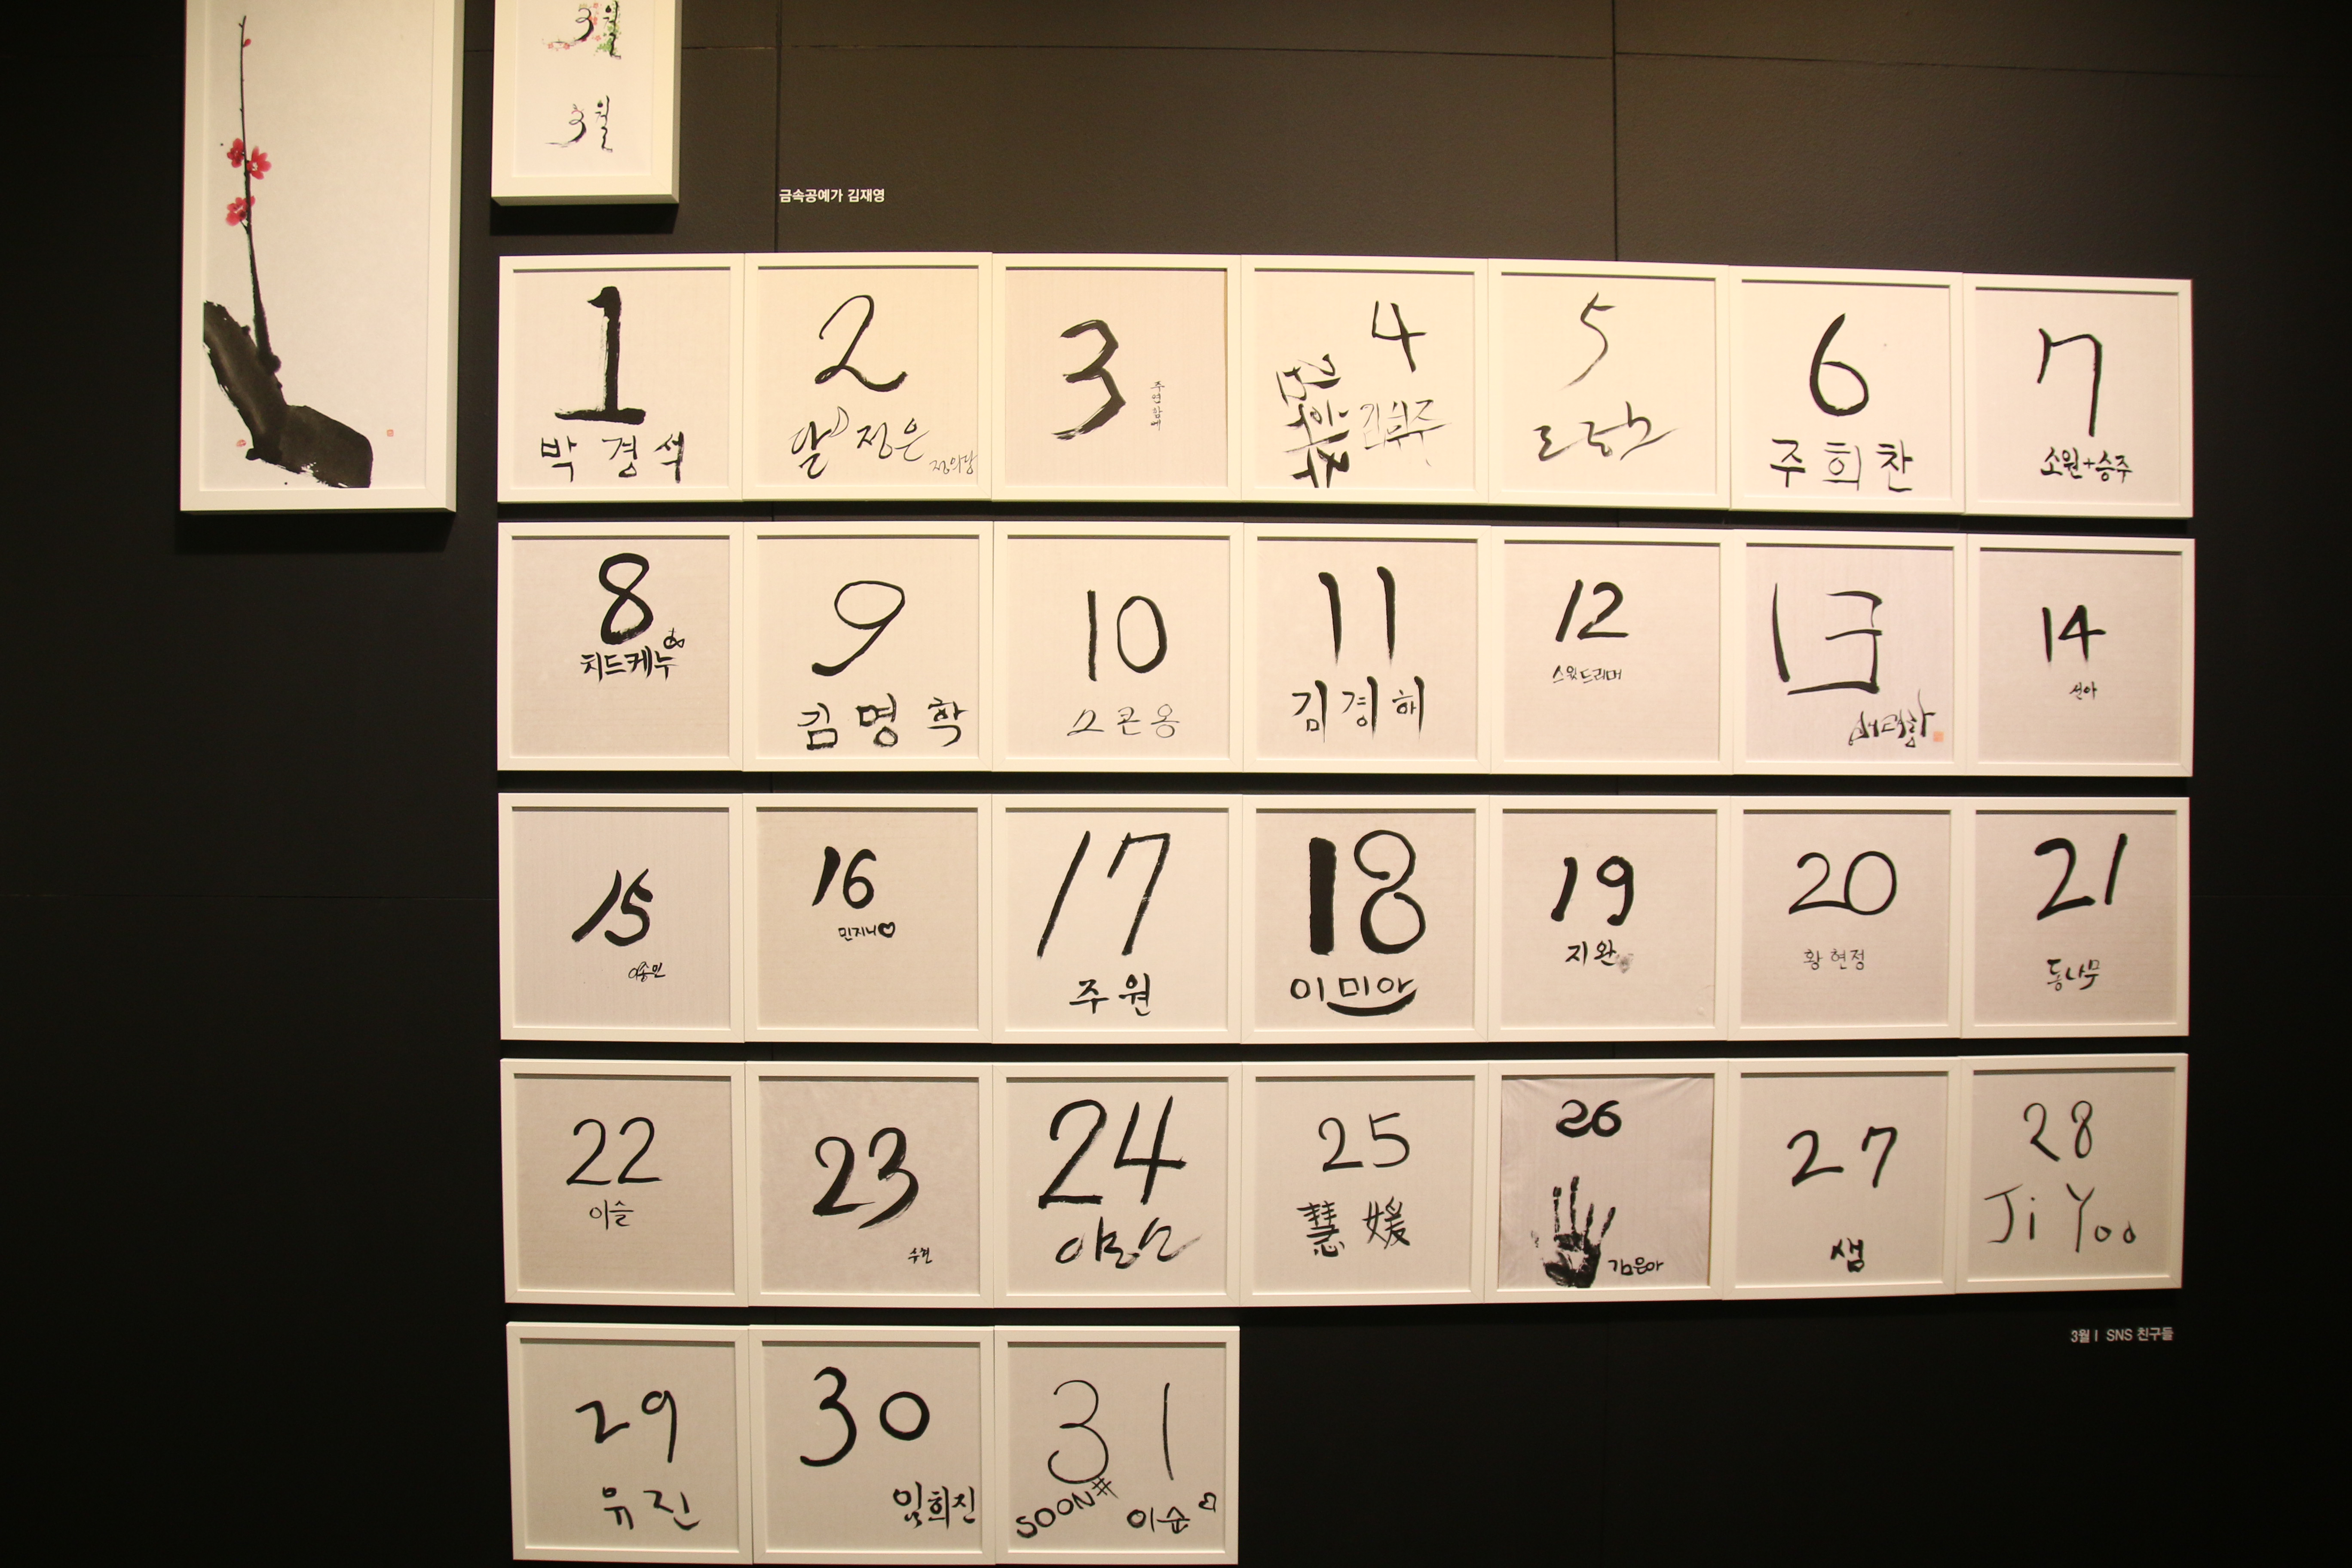 3월
3월
금속공예가 김재영
1
박경석
2
정은
3
4
5
6
주희찬
7
소원+승주
8
치드케누
9
김명학
10
11
김경해
12
스윗드리머
13
14
선아
15
이종민
16
민지니♡
17
주원
18
이미아
19
지완
20
황현정
21
동나무
22
이슬
23
수현
24
25
慧媛
26
김은아
27
샘
28
Ji Yoo
3월 | SNS 친구들
29
유진
30
임희진
31
SOON#
이순♡